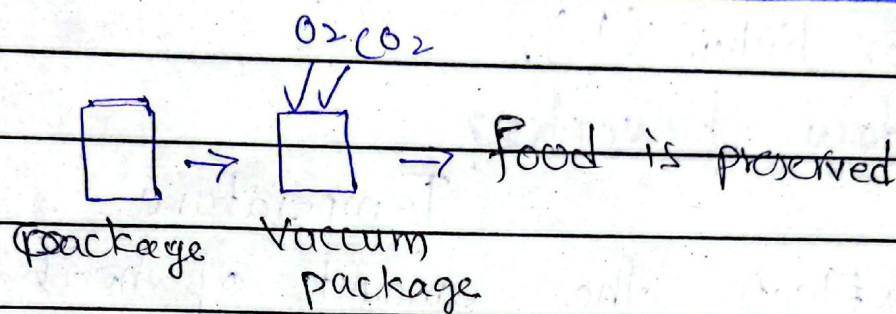 O2 CO2
→ → food is preserved
package Vaccum
package